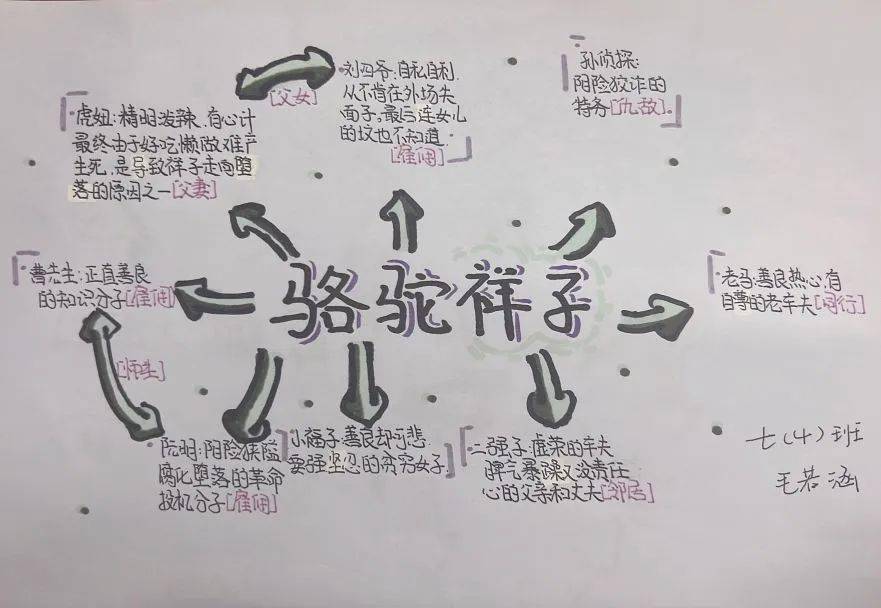 虎妞：精明泼辣、有心计
最终由于好吃懒做难产
生死，是导致祥子走向堕
落的原因之一[父妻]
[父女]
刘四爷：自私自利，
从不肯在外场失
面子，最后连女儿
的坟也不知道
[雇佣]
孙侦探：
阴险狡诈的
特务[仇敌]
曹先生：正直善良
的知识分子[雇佣]
骆驼祥子
老马：善良热心有
自尊的老车夫[同行]
[师生]
阮明：阴险狭隘
腐化堕落的革命
投机分子[雇佣]
小福子：善良却可悲
要强坚忍的贫穷女子
二强子：虚荣的车夫
脾气暴躁又没责任
心的父亲和丈夫[邻居]
七（4）班
毛若涵